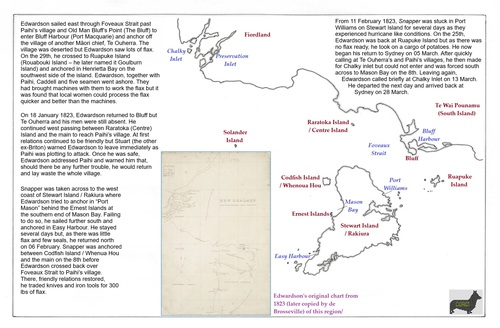 Edwardson sailed east through Foveaux Strait past
Paihi's village and Old Man Bluff's Point (The Bluff) to
enter Bluff Harbour (Port Macquarie) and anchor off
the village of another Māori chief, Te Ouherra. The
village was deserted but Edwardson saw lots of flax.
On the 29th, he crossed to Ruapuke Island
(Rouabouki Island – he later named it Goulburn
Island) and anchored in Henrietta Bay on the
southwest side of the island. Edwardson, together with
Paihi, Caddell and five seamen went ashore. They
had brought machines with to work the flax but it
was found that local women could process the flax
quicker and better than the machines.
On 18 January 1823, Edwardson returned to Bluff but
Te Ouherra and his men were still absent. He
continued west passing between Raratoka (Centre)
Island and the main to reach Paihi's village. At first
relations continued to be friendly but Stuart (the other
ex-Briton) warned Edwardson to leave immediately as
Paihi was plotting to attack. Once he was safe,
Edwardson addressed Paihi and warned him that,
should there be any further trouble, he would return
and lay waste the whole village.
Snapper was taken across to the west
coast of Stewart Island / Rakiura where
Edwardson tried to anchor in "Port
Mason" behind the Ernest Islands at
the southern end of Mason Bay. Failing
to do so, he sailed further south and
anchored in Easy Harbour. He stayed
several days but, as there was little
flax and few seals, he returned north
on 06 February. Snapper was anchored
between Codfish Island / Whenua Hou
and the main on the 8th before
Edwardson crossed back over
Foveaux Strait to Paihi's village.
There, friendly relations restored,
he traded knives and iron tools for 300
lbs of flax.
From 11 February 1823, Snapper was stuck in Port
Williams on Stewart Island for several days as they
experienced hurricane like conditions. On the 25th,
Edwardson was back at Ruapuke Island but as there was
no flax ready, he took on a cargo of potatoes. He now
began his return to Sydney on 05 March. After quickly
calling at Te Ouherra's and Paihi's villages, he then made
for Chalky Inlet but could not enter and was forced south
across to Mason Bay on the 8th. Leaving again,
Edwardson called briefly at Chalky Inlet on 13 March.
He departed the next day and arrived back at
Sydney on 28 March.
Fiordland
Chalky
Inlet
Preservation
Inlet
Te Wai Pounamu
(South Island)
Raratoka Island
/ Centre Island
Bluff
Harbour
Solander
Island
Foveaux
Strait
Bluff
Codfish Island
/ Whenuoa Hou
Port
Williams
Ruapuke
Island
Mason
Bay
Ernest Islands
Stewart Island
/ Rakiura
Easy Harbour
Edwardson's original chart from
1823 (later copied by de
Brosseville) of this region/